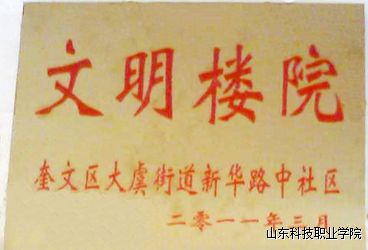 文明楼院
奎文区大虞街道新华路中社区
二零一一年三月
山东科技职业学院